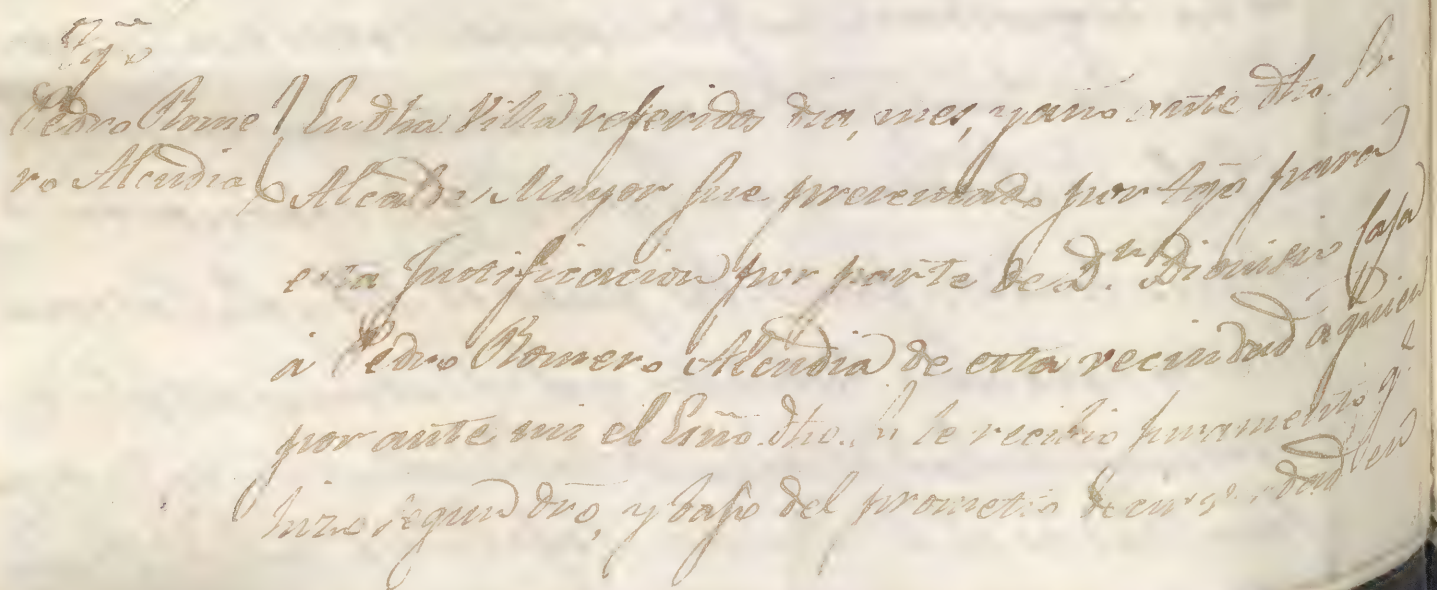 Tgo
Pedro Rome
ro Alcudia
En dha Villa referidos dia, mes, y año ante dho Sr.
Alcalde Mayor fue presentado por tgo para
esta Justificacion por parte de Dn. Dionisio Casa
á Pedro Romero Alcudia de esta vecindad á quien
por ante mi el Esño. dho. Sr. le recibio juramento q.e
hizo segun dro, y bajo del prometio decir verdad en